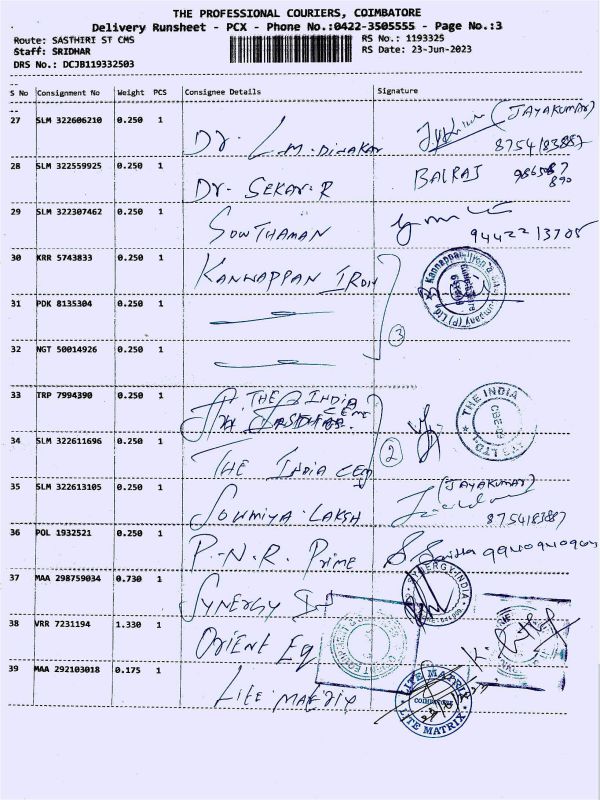 THE PROFESSIONAL COURIERS, COIMBATORE
Delivery Runsheet - PCX - Phone No.:0422-3505555 - Page No.:3
Route: SASTHIRI ST CMS
RS No.: 1193325
Staff: SRIDHAR
RS Date: 23-Jun-2023
DRS No.: DCJB119332503
S No Consignment No Weight PCS Consignee Details Signature
27 SLM 322606210 0.250 1 Dr. L.M. Dinakar (JAYAKUMAR)
8754183887
28 SLM 322559925 0.250 1 Dr. SEKAR.R BALRAJ
29 SLM 322307462 0.250 1 SOWTHAMAN
94422 13705
30 KRR 5743833 0.250 1 KANNAPPAN IRON
31 PDK 8135304 0.250 1
3
32 NGT 50014926 0.250 1
33 TRP 7994390 0.250 1 THE INDIA CEM
THE INDIA
CBE-09
34 SLM 322611696 0.250 1 THE INDIA CEM
2
35 SLM 322613105 0.250 1 SOWMIYA LAKSH (JAYAKUMAR)
8754183887
36 POL 1932521 0.250 1 P.N.R. Prime
37 MAA 298759034 0.730 1 SYNERGY
SYNERGY-INDIA
38 VRR 7231194 1.330 1 ORIENT Eq
39 MAA 292103018 0.175 1 LITE MATRIX
LITE MATRIX
COIMBATORE
LITE MATRIX